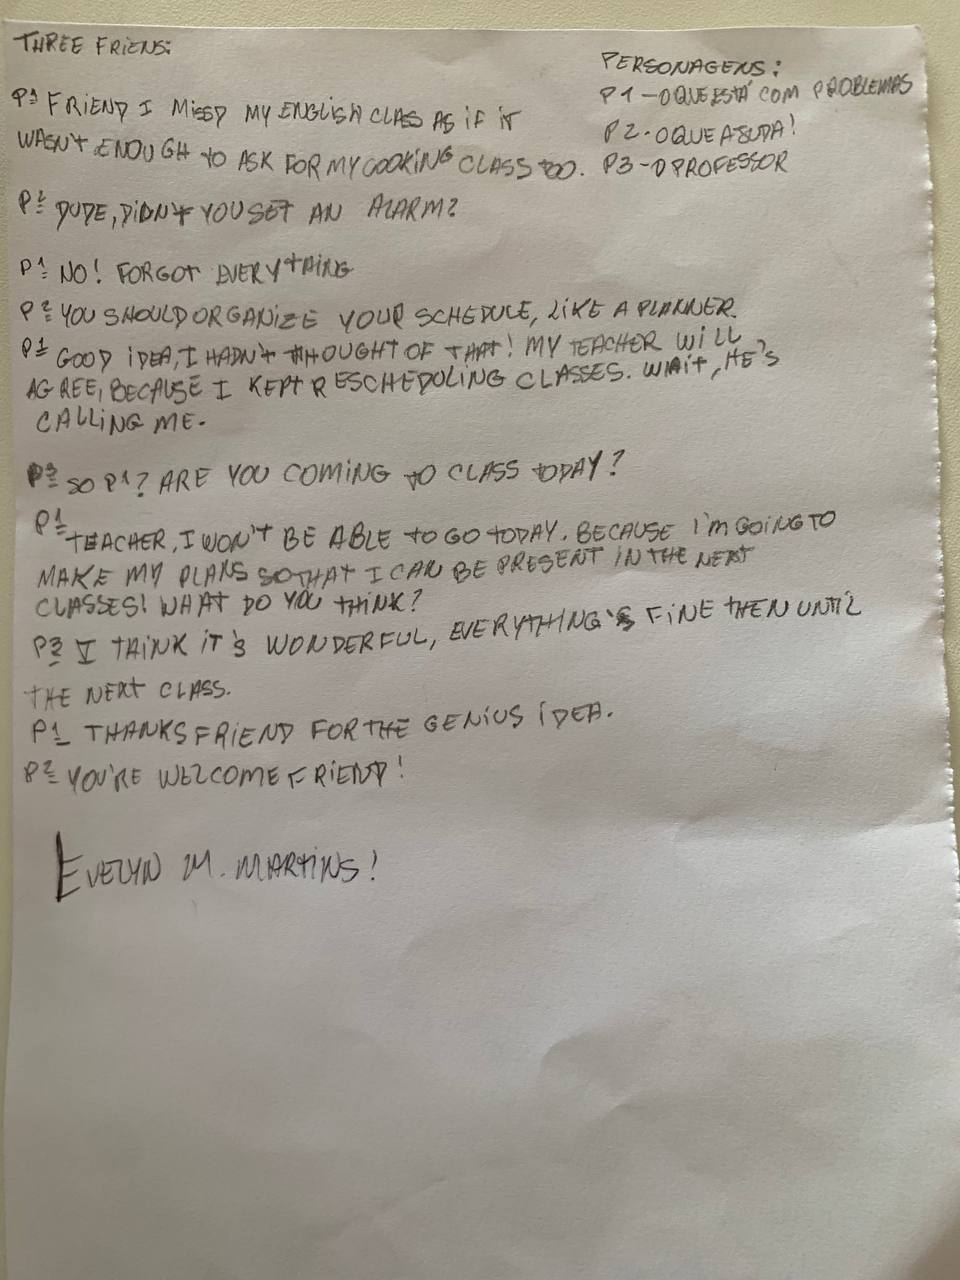 THREE FRIENS:
PERSONAGENS:
P1 - O QUE ESTÁ COM PROBLEMAS
P2 - O QUE AJUDA!
P3 - O PROFESSOR
P1 FRIEND I MISSD MY ENGLISH CLASS AS IF IT
WASN'T ENOUGH TO ASK FOR MY COOKING CLASS TOO.
P2 DUDE, DIDN'T YOU SET AN ALARM?
P1 NO! FORGOT EVERYTHING
P2 YOU SHOULD ORGANIZE YOUR SCHEDULE, LIKE A PLANNER.
P1 GOOD IDEA, I HADN'T THOUGHT OF THAT! MY TEACHER WILL
AGREE, BECAUSE I KEPT RESCHEDULING CLASSES. WAIT, HE'S
CALLING ME.
P3 SO P1? ARE YOU COMING TO CLASS TODAY?
P1 TEACHER, I WON'T BE ABLE TO GO TODAY. BECAUSE I'M GOING TO
MAKE MY PLANS SO THAT I CAN BE PRESENT IN THE NEXT
CLASSES! WHAT DO YOU THINK?
P3 I THINK IT'S WONDERFUL, EVERYTHING'S FINE THEN UNTIL
THE NEXT CLASS.
P1 THANKS FRIEND FOR THE GENIUS IDEA.
P2 YOU'RE WELCOME FRIEND!
EVELYN M. MARTINS!